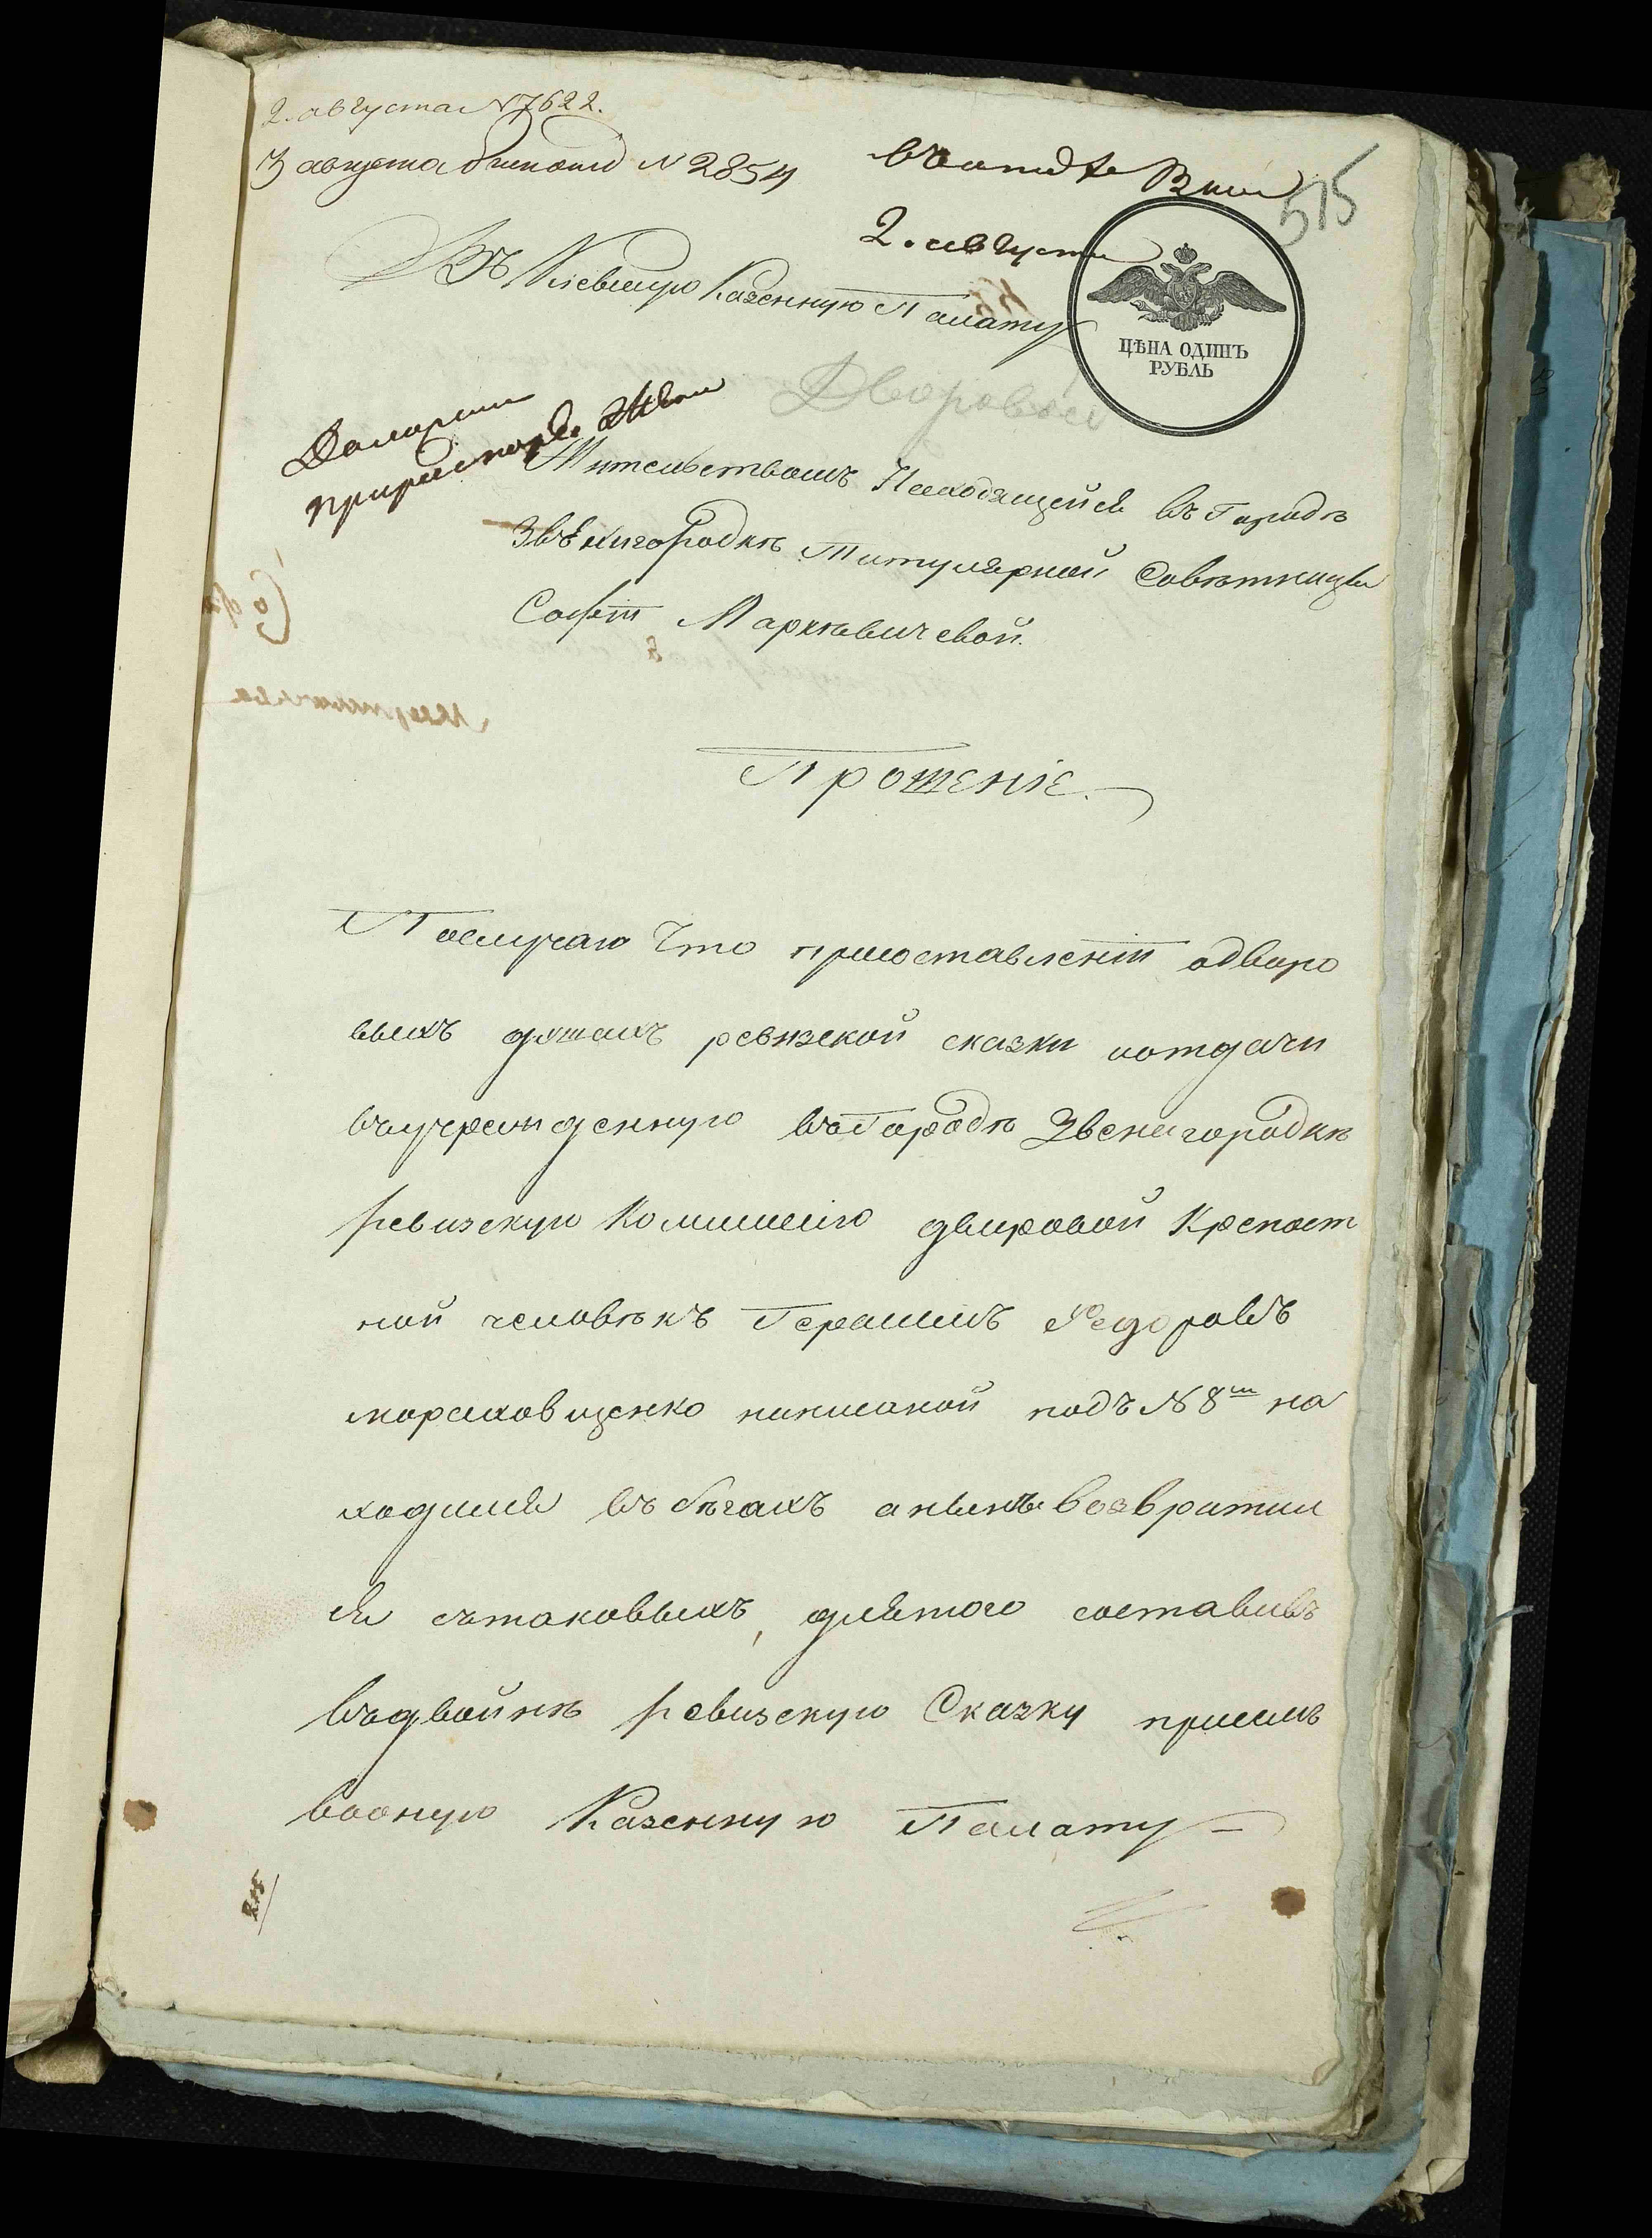 2. августа N 7622.
3 августа N 2854
515
2. августа
Въ Кіевскую Казенную Палату
ЦѢНА ОДИНЪ
РУБЛЬ
Дворовые
Жительствомъ Находящейся въ Городѣ
Звѣнигородкѣ Титулярной Совѣтницы
Софіи Маркѣвичевой.
Прошеніе.
Послучаю Что присоставленіи одворо
выхъ душахъ ревизской сказки иотдачи
въучрежденную въГородѣ Звенигородкѣ
ревизскую Комисію дворовой Крепост
ной человѣкъ Герасимъ Федоровъ
написаной подъ N 8 на
ходился въ бѣгахъ анынѣ возвратил
ся сътаковыхъ, длятого составивъ
въдвойнѣ ревизскую Сказку
вооную Казенную Палату